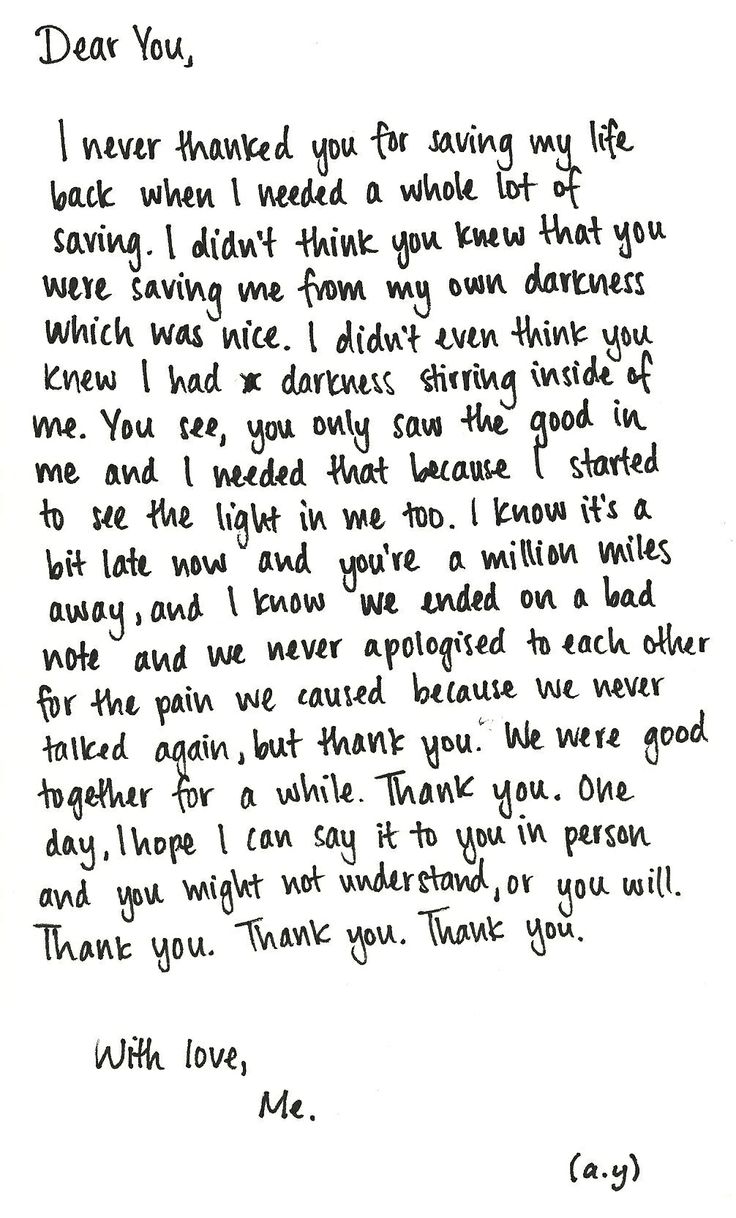 Dear You,
I never thanked you for saving my life
back when I needed a whole lot of
saving. I didn't think you knew that you
were saving me from my own darkness
which was nice. I didn't even think you
knew I had darkness stirring inside of
me. You see, you only saw the good in
me and I needed that because I started
to see the light in me too. I know it's a
bit late now and you're a million miles
away, and I know we ended on a bad
note and we never apologised to each other
for the pain we caused because we never
talked again, but thank you. We were good
together for a while. Thank you. One
day, I hope I can say it to you in person
and you might not understand, or you will.
Thank you. Thank you. Thank you.
With love,
Me.
(a.y)